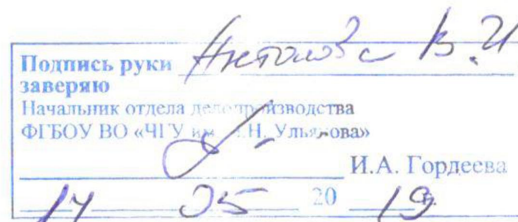 Подпись руки Антонова В.И
заверяю
Начальник отдела делопроизводства
ФГБОУ ВО «ЧГУ им. И.Н. Ульянова»
И.А. Гордеева
14 05 20 19